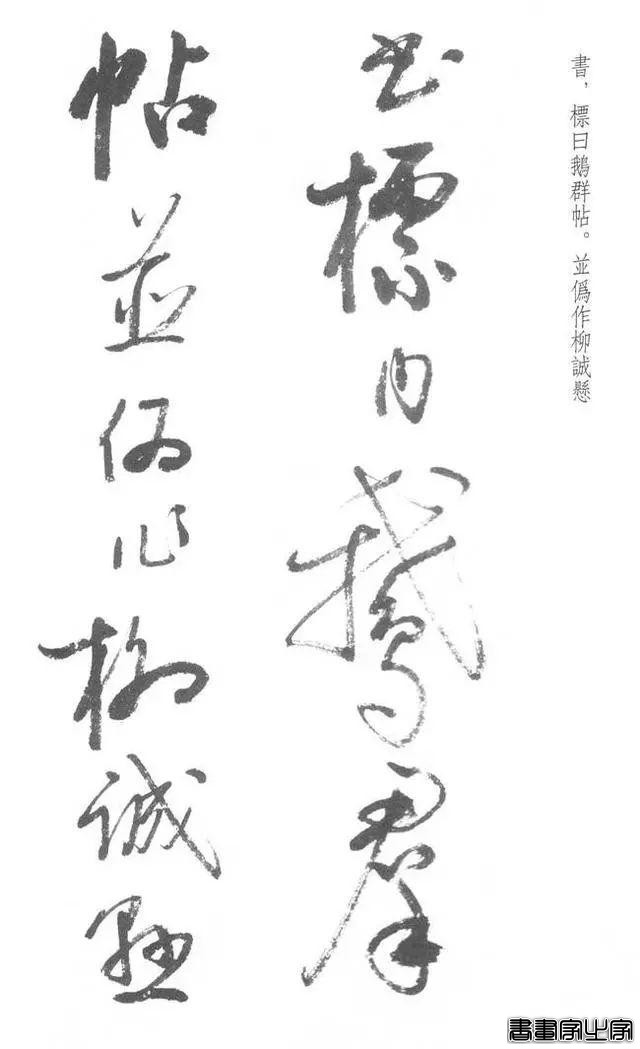 書，標曰鵝群帖。並僞作柳誠懸
书標曰鵝羣
帖並偽作柳誠懸
書畫家之家